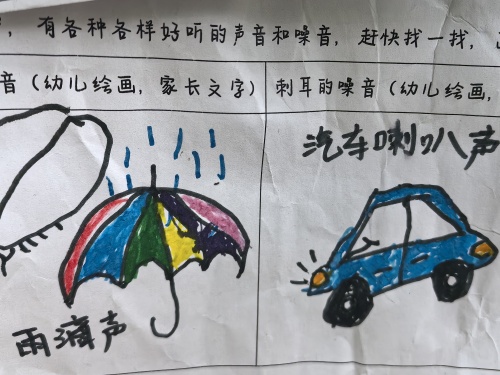 有各种各样好听的声音和噪音，赶快找一找，
音（幼儿绘画，家长文字）
刺耳的噪音（幼儿绘画，
汽车喇叭声
雨滴声